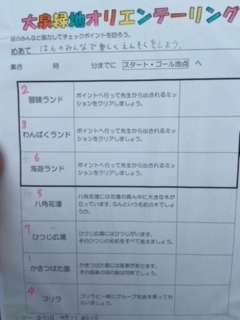 大泉緑地オリエンテーリング
班のみんなと協力してチェックポイントを回ろう。
めあて はんのみんなで楽しくえんそくをしよう。
集合 時 分に スタート・ゴール地点 へ
2
冒険ランド
ポイントへ行って先生から出されるミッ
ションをクリアしましょう。
3
わんぱくランド
ポイントへ行って先生から出されるミッ
ションをクリアしましょう。
6
海遊ランド
ポイントへ行って先生から出されるミッ
ションをクリアしましょう。
5
八角花壇
八角花壇には花壇の真ん中に大きな木が
立っています。なんという名前の木でしょう
か。
7
ひつじ広場
ひつじ広場にはひつじがいます。
そのひつじの名前をすべて書きましょう。
1
かきつばた園
かきつばた園には
4